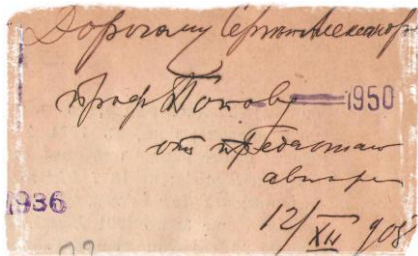 Дорогому Сергею Александр
проф Попову 1950
от предан
автора
1936
12/XII 908